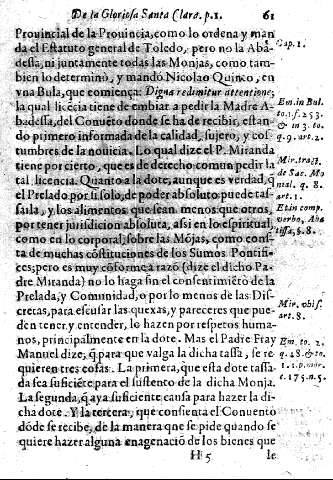 De la Gloriosa Santa Clara. p. 1. 61
Prouincial de la Prouincia, como lo ordena y man
da el Estatuto general de Toledo, pero no la Aba
dessa, ni juntamente todas las Monjas, como tam
bien lo determinò, y mandó Nicolao Quinto, en
vna Bula, que comiença: Digna redimitur attentione;
la qual licẽcia tiene de embiar a pedir la Madre A-
badessa, del Conuẽto donde se ha de recibir, estan-
do primero informada de la calidad, sujeto, y cos-
tumbres de la nouicia. Lo qual dize el P. Miranda
tiene por cierto, que es de derecho comun pedir la
tal licencia. Quanto a la dote, aunque es verdad, q̃
el Prelado por si solo, de poder absoluto puede tas-
sarla, y los alimentos que sean menos que otros,
por tener jurisdicion absoluta, assi en lo espiritual,
como en lo corporal, sobre las Mõjas, como cons-
ta de muchas cõstituciones de los Sumos Pontifi-
ces; pero es muy cõforme a razõ (dize el dicho Pa-
dre Miranda) no lo haga sin el consentimiẽto de la
Prelada, y Comunidad, o por lo menos de las Dis-
cretas, para escusar las quexas, y pareceres que pue-
den tener, y entender, lo hazen por respetos huma-
nos, principalmente en la dote. Mas el Padre Fray
Manuel dize, q̃ para que valga la dicha tassa, se re-
quieren tres cosas. La primera, que esta dote tassa-
da sea suficiẽte para el sustento de la dicha Monja.
La segunda, q̃ aya suficiente causa para hazer la di-
cha dote. Y la tercera, que consienta el Conuento
dõde se recibe, de la manera que se pide quando se
quiere hazer alguna enagenaciõ de los bienes que
H 5 le
Cap. 1.
Em. in Bul.
to. 1. f. 253.
& in 3. to.
q. 9. art. 2.
Mir. tract.
de Sac. Mo
nal. q. 8.
art. 1.
Et in comp.
verbo, Aba
tissa, §. 8.
Mir. vbi s.
art. 8.
Em. to. 2.
q. 48. & to.
t. 175. n. 5.